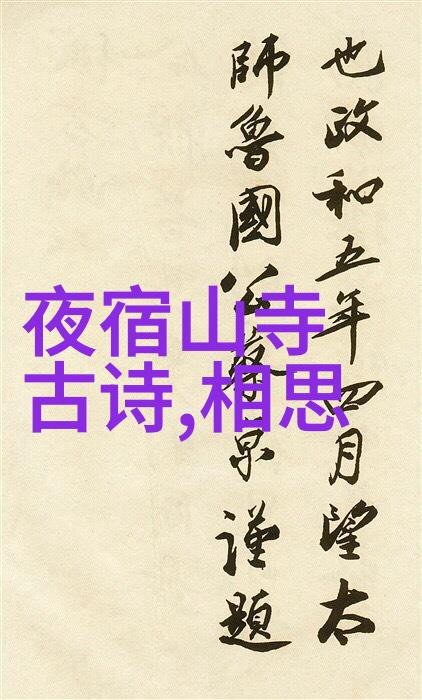 夜宿山寺
古诗,相思
也政和五年四月望太
師魯國公蔡京謹題